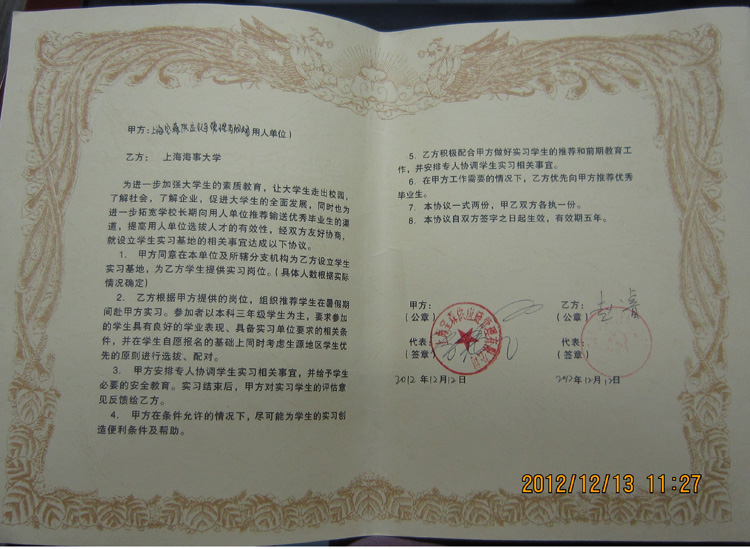 甲方：上海 用人单位）
乙方： 上海海事大学
为进一步加强大学生的素质教育，让大学生走出校园，
了解社会，了解企业，促进大学生的全面发展，同时也为
进一步拓宽学校长期向用人单位推荐输送优秀毕业生的渠
道，提高用人单位选拔人才的有效性，经双方友好协商，
就设立学生实习基地的相关事宜达成以下协议。
1． 甲方同意在本单位及所辖分支机构为乙方设立学生
实习基地，为乙方学生提供实习岗位。（具体人数根据实际
情况确定）
2． 乙方根据甲方提供的岗位，组织推荐学生在暑假期
间赴甲方实习。参加者以本科三年级学生为主，要求参加
的学生具有良好的学业表现、具备实习单位要求的相关条
件，并在学生自愿报名的基础上同时考虑生源地区学生优
先的原则进行选拔、配对。
3． 甲方安排专人协调学生实习相关事宜，并给予学生
必要的安全教育。实习结束后，甲方对实习学生的评估意
见反馈给乙方。
4． 甲方在条件允许的情况下，尽可能为学生的实习创
造便利条件及帮助。
5．乙方积极配合甲方做好实习学生的推荐和前期教育工
作，并安排专人协调学生实习相关事宜。
6．在甲方工作需要的情况下，乙方优先向甲方推荐优秀
毕业生。
7． 本协议一式两份，甲乙双方各执一份。
8． 本协议自双方签字之日起生效，有效期五年。
甲方：
（公章）
代表：
（签章）
2012年12月12日
乙方：
（公章）
代表：
（签章）
2012年12月12日
2012/12/13 11:27